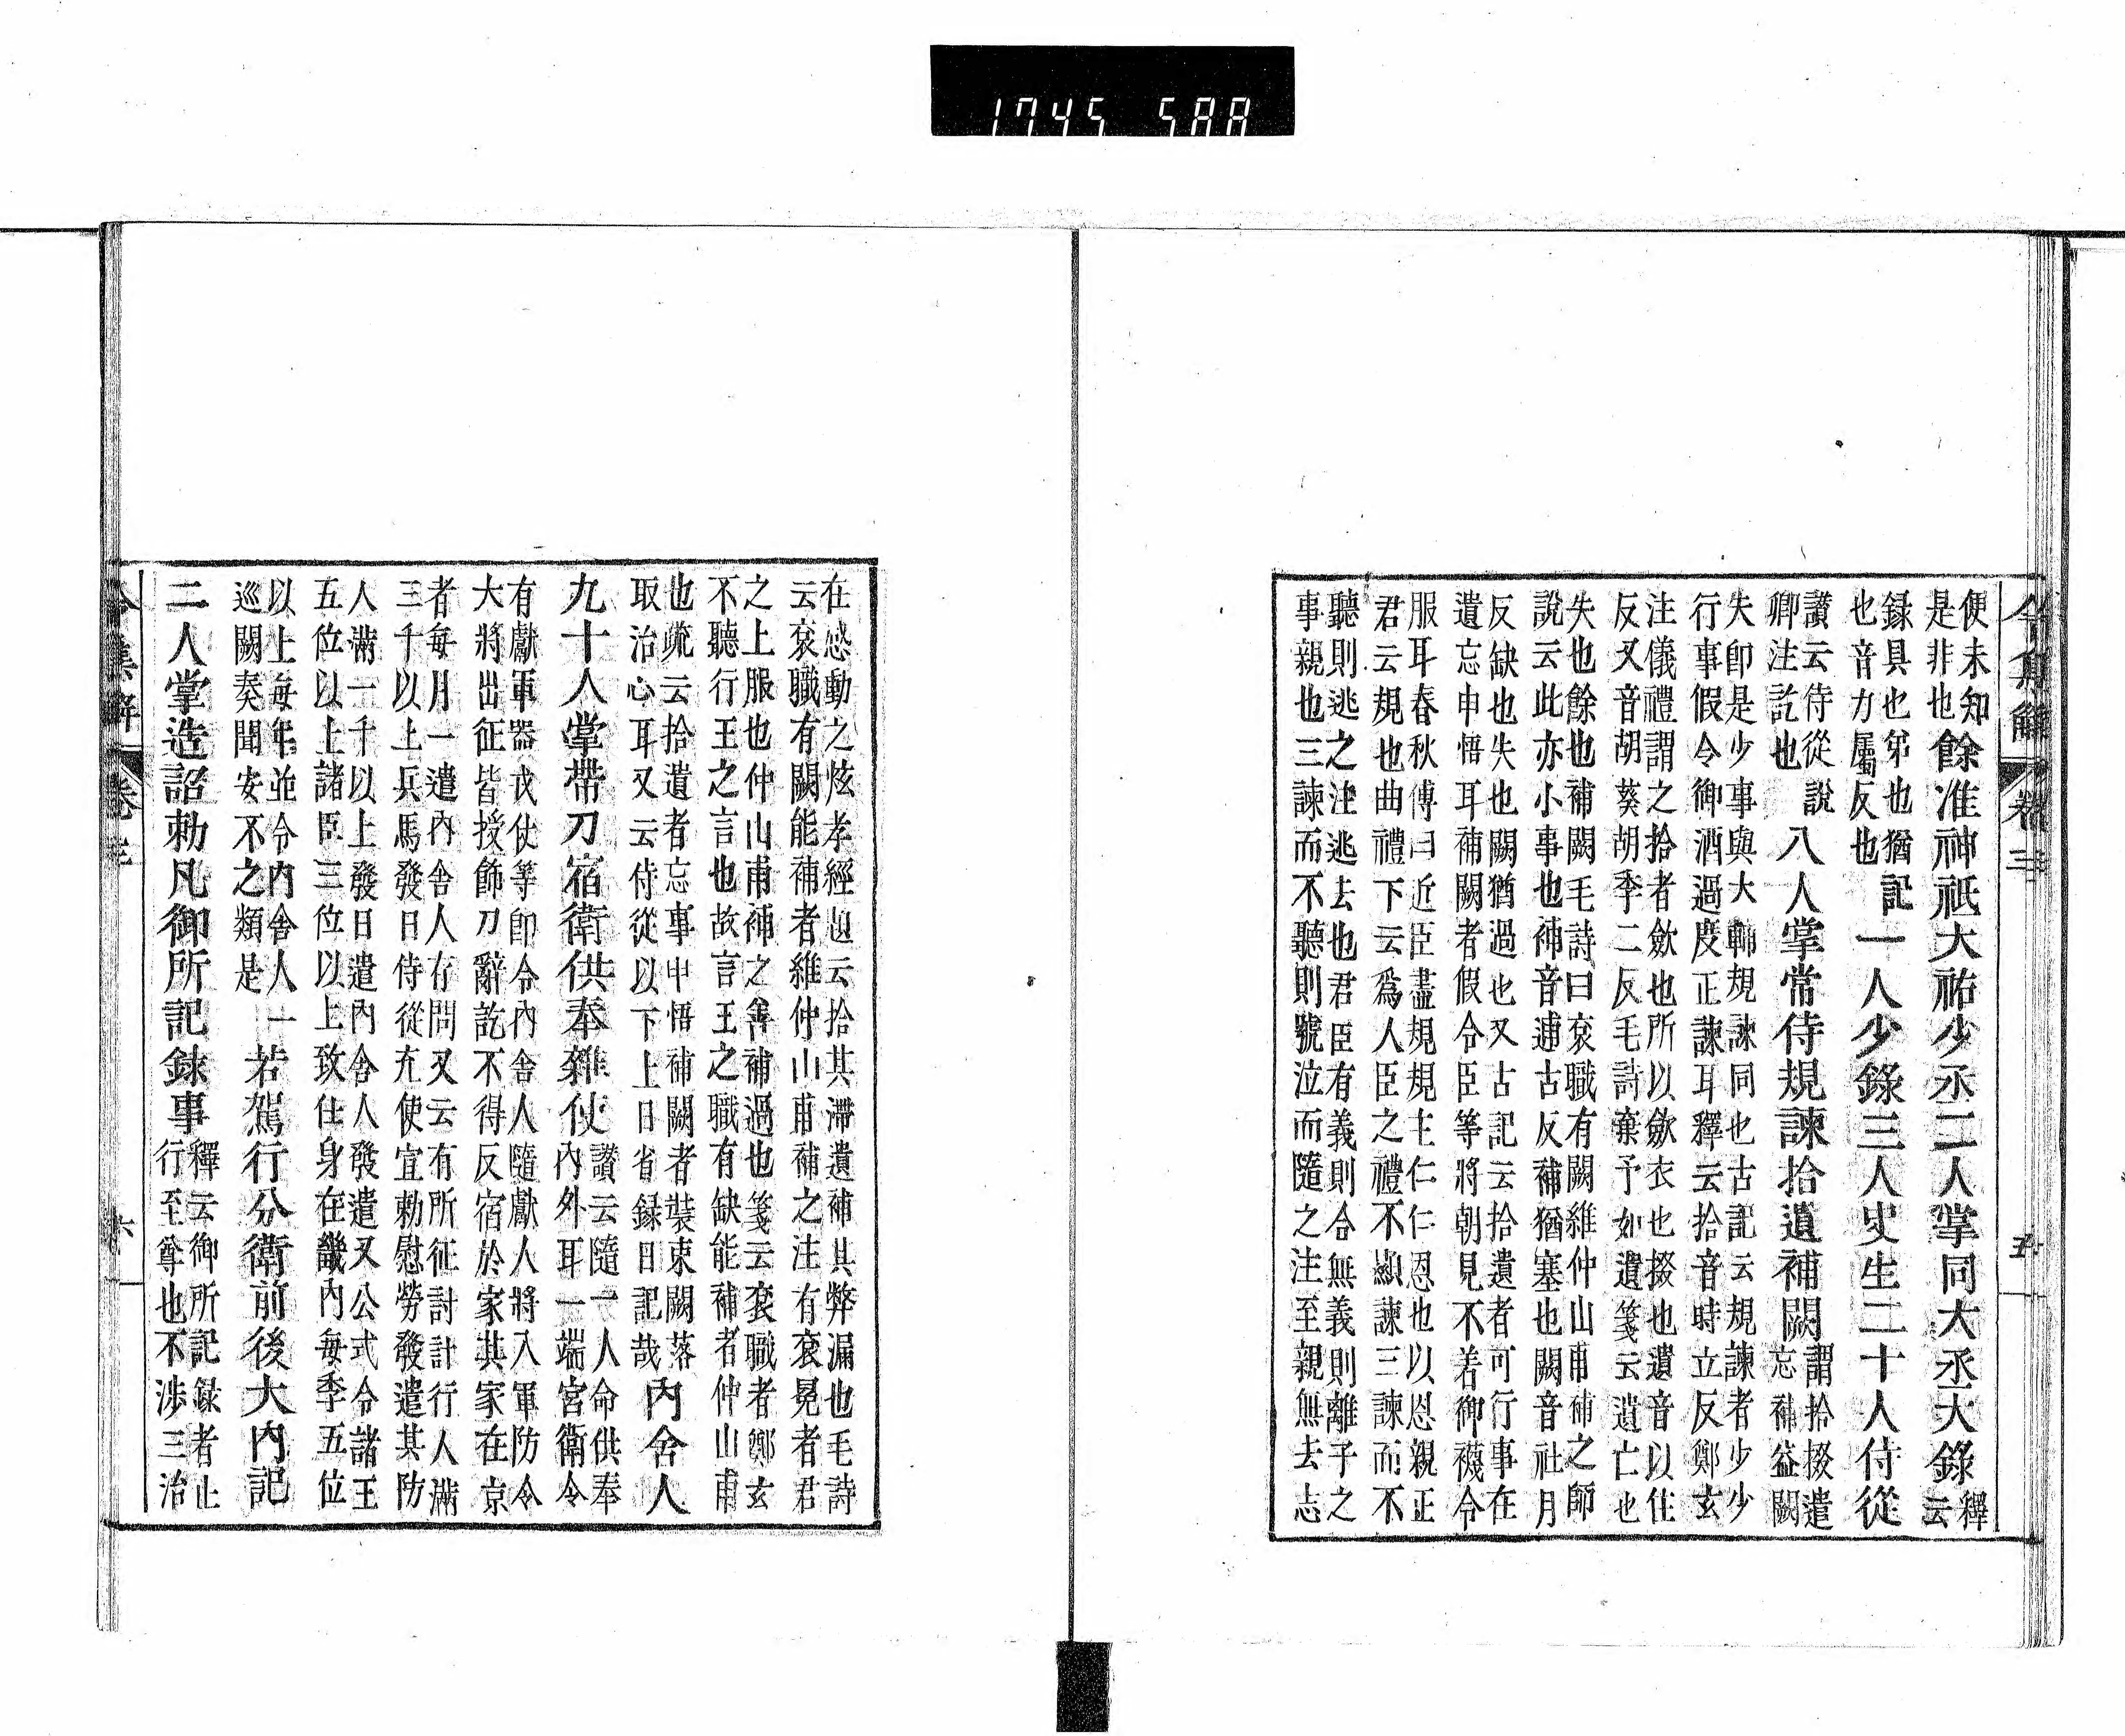 令集解 卷三 五
便未知
是非也
餘准神祇大祐少丞二人掌同大丞大錄
釋
云
録具也第也猶記
也音力屬反也
一人少錄三人史生二十人侍從
讃云侍從說
卿注訖也
八人掌常侍規諫拾遺補闕
謂拾掇遣
忘補益闕
失卽是少事與大輔規諫同也古記云規諫者少少
行事假令御酒過度正諫耳釋云拾音時立反鄭玄
注儀禮謂之拾者斂也所以斂衣也掇也遺音以住
反又音胡葵胡季二反毛詩棄予如遺箋云遺亡也
失也餘也補闕毛詩曰袞職有闕維仲山甫補之師
說云此亦小事也補音逋古反補猶塞也闕音社月
反缺也失也闕猶過也又古記云拾遺者可行事在
遺忘申悟耳補闕者假令臣等將朝見不着御襪令
服耳春秋傳曰近臣盡規規主仁仁恩也以恩親正
君云規也曲禮下云爲人臣之禮不顯諫三諫而不
聽則逃之注逃去也君臣有義則合無義則離子之
事親也三諫而不聽則號泣而隨之注至親無去志
在感動之炫孝經題云拾其滯遺補其弊漏也毛詩
云袞職有闕能補者維仲山甫補之注有袞冕者君
之上服也仲山甫補之善補過也箋云袞職者鄭玄
不聽行王之言也故言王之職有缺能補者仲山甫
也疏云拾遺者忘事申悟補闕者裝束闕落
取治心耳又云侍從以下上日省録日記哉
內舍人
九十人掌帶刀宿衛供奉雜使
讃云隨一人命供奉
內外耳一端宮衛令
有獻軍器戎仗等卽令內舍人隨獻人將入軍防令
大將出征皆授飾刀辭訖不得反宿於家其家在京
者每月一遣內舍人存問又云有所征討計行人滿
三千以上兵馬發日侍從充使宜勅慰勞發遣其防
人滿一千以上發日遣內舍人發遣又公式令諸王
五位以上諸臣三位以上致仕身在畿內每季五位
以上每年並令內舍人一
巡闕奏聞安不之類是
若駕行分衛前後大內記
二人掌造詔勅凡御所記錄事
釋云御所記録者止
行至尊也不渉三治
令集解 卷三 六
1745 588